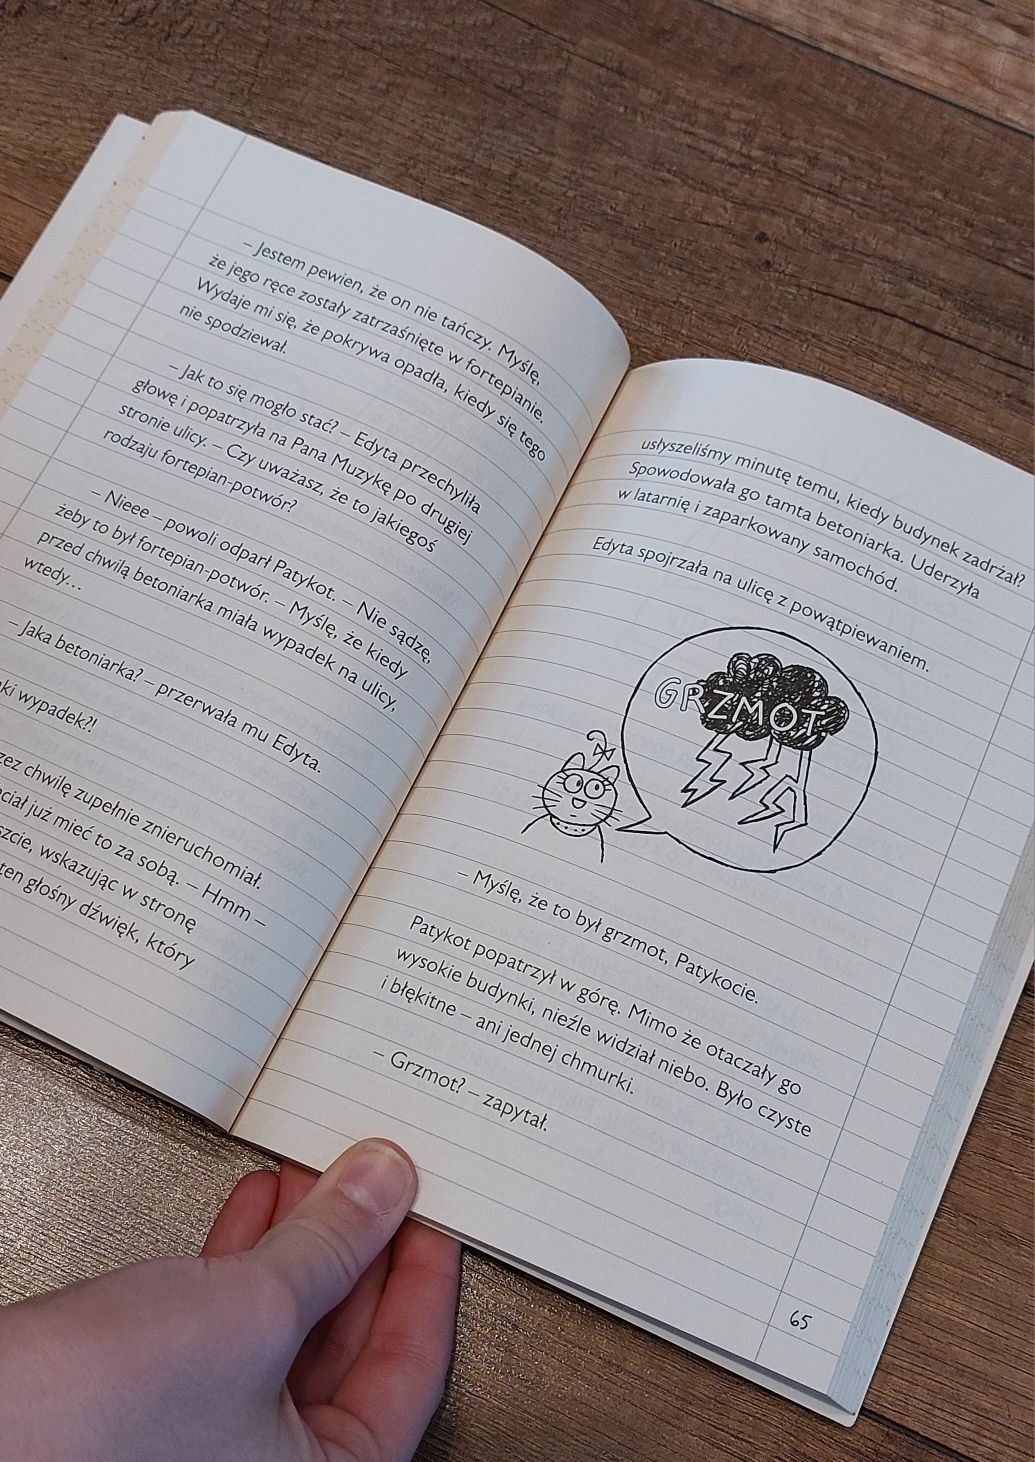 – Jestem pewien, że on nie tańczy. Myślę,
że jego ręce zostały zatrzaśnięte w fortepianie.
Wydaje mi się, że pokrywa opadła, kiedy się tego
nie spodziewał.
– Jak to się mogło stać? – Edyta przechyliła
głowę i popatrzyła na Pana Muzykę po drugiej
stronie ulicy. – Czy uważasz, że to jakiegoś
rodzaju fortepian-potwór?
– Nieee – powoli odparł Patykot. – Nie sądzę,
żeby to był fortepian-potwór. – Myślę, że kiedy
przed chwilą betoniarka miała wypadek na ulicy,
wtedy...
– Jaka betoniarka? – przerwała mu Edyta.
wypadek?!
chwilę zupełnie znieruchomiał.
już mieć to za sobą. – Hmm –
wskazując w stronę
ten głośny dźwięk, który
usłyszeliśmy minutę temu, kiedy budynek zadrżał?
Spowodowała go tamta betoniarka. Uderzyła
w latarnię i zaparkowany samochód.
Edyta spojrzała na ulicę z powątpiewaniem.
GRZMOT
– Myślę, że to był grzmot, Patykocie.
Patykot popatrzył w górę. Mimo że otaczały go
wysokie budynki, nieźle widział niebo. Było czyste
i błękitne – ani jednej chmurki.
– Grzmot? – zapytał.
65